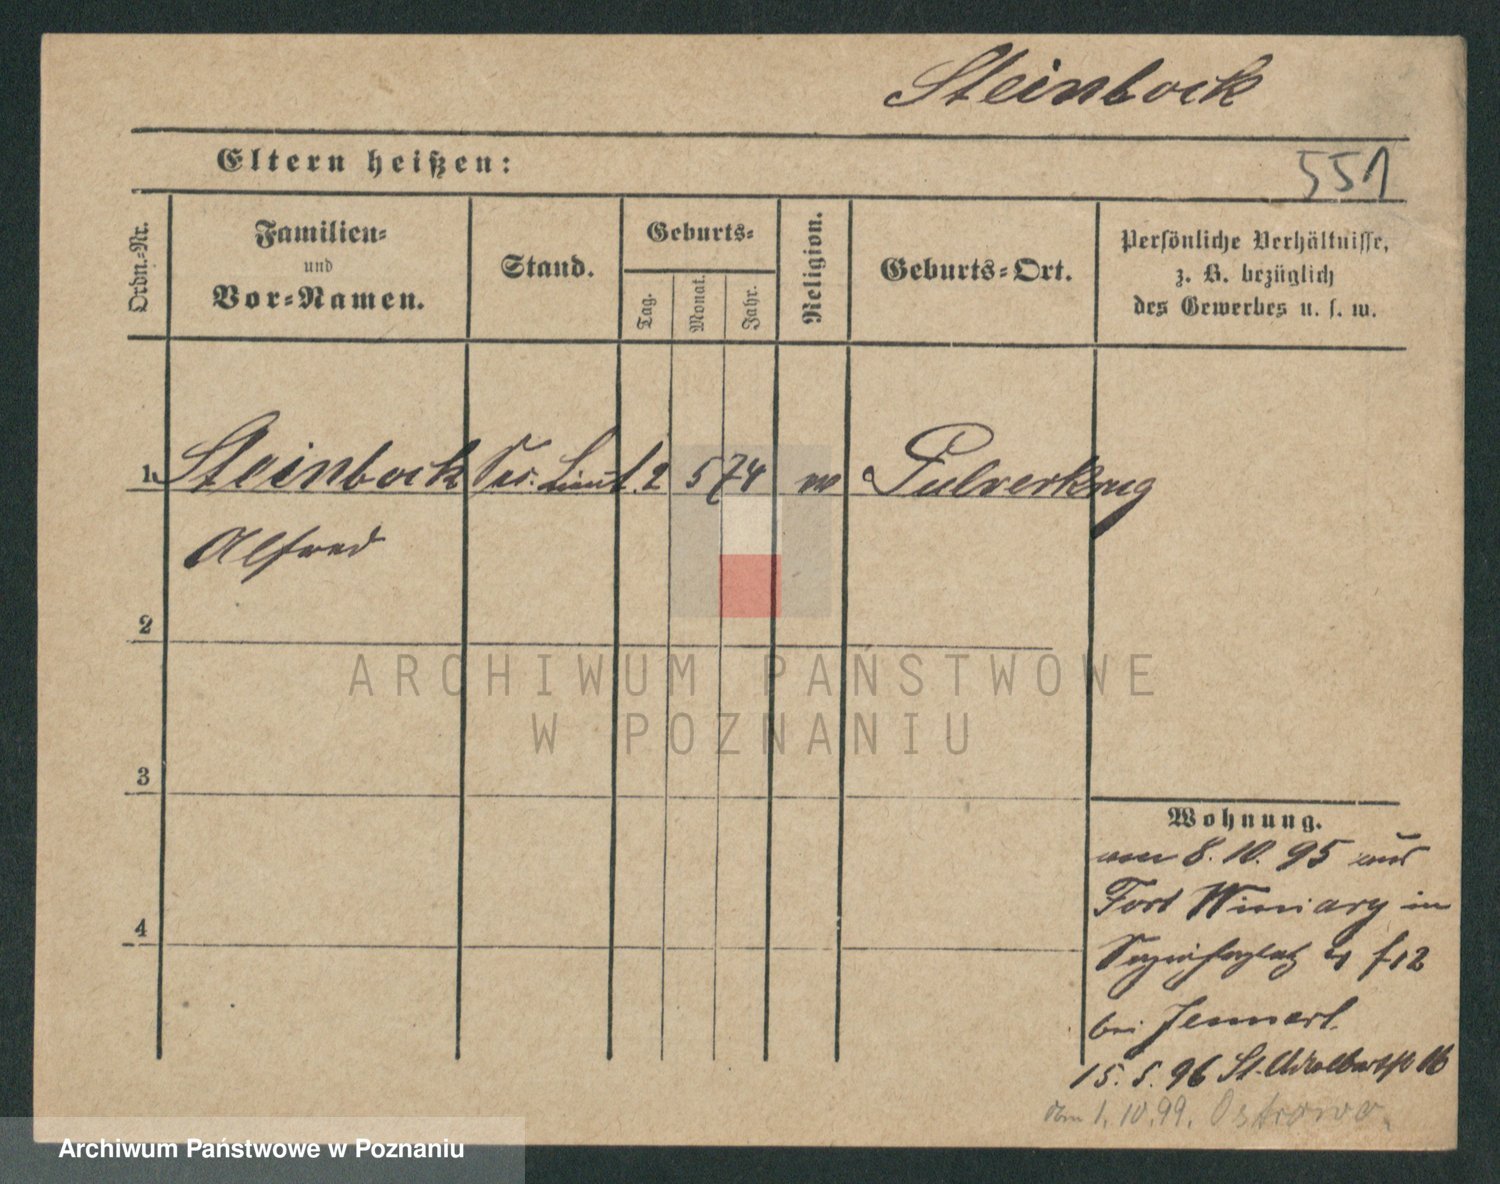 Steinbock
Eltern heißen:
551
Ordn.-Nr.
Familien-
und
Vor-Namen.
Stand.
Geburts-
Tag.
Monat.
Jahr.
Religion.
Geburts-Ort.
Persönliche Verhältnisse,
z. B. bezüglich
des Gewerbes u. s. w.
1. Steinbock Sec. Lieut. 2 5 74 Pulverkrug
Alfred
2
3
4
ARCHIWUM PAŃSTWOWE
W POZNANIU
Wohnung.
8. 10. 95 aus
Fort Winiary in
bei
15. 5. 96 St. Adalbertstr 16
1. 10. 99. Ostrowo.
Archiwum Państwowe w Poznaniu